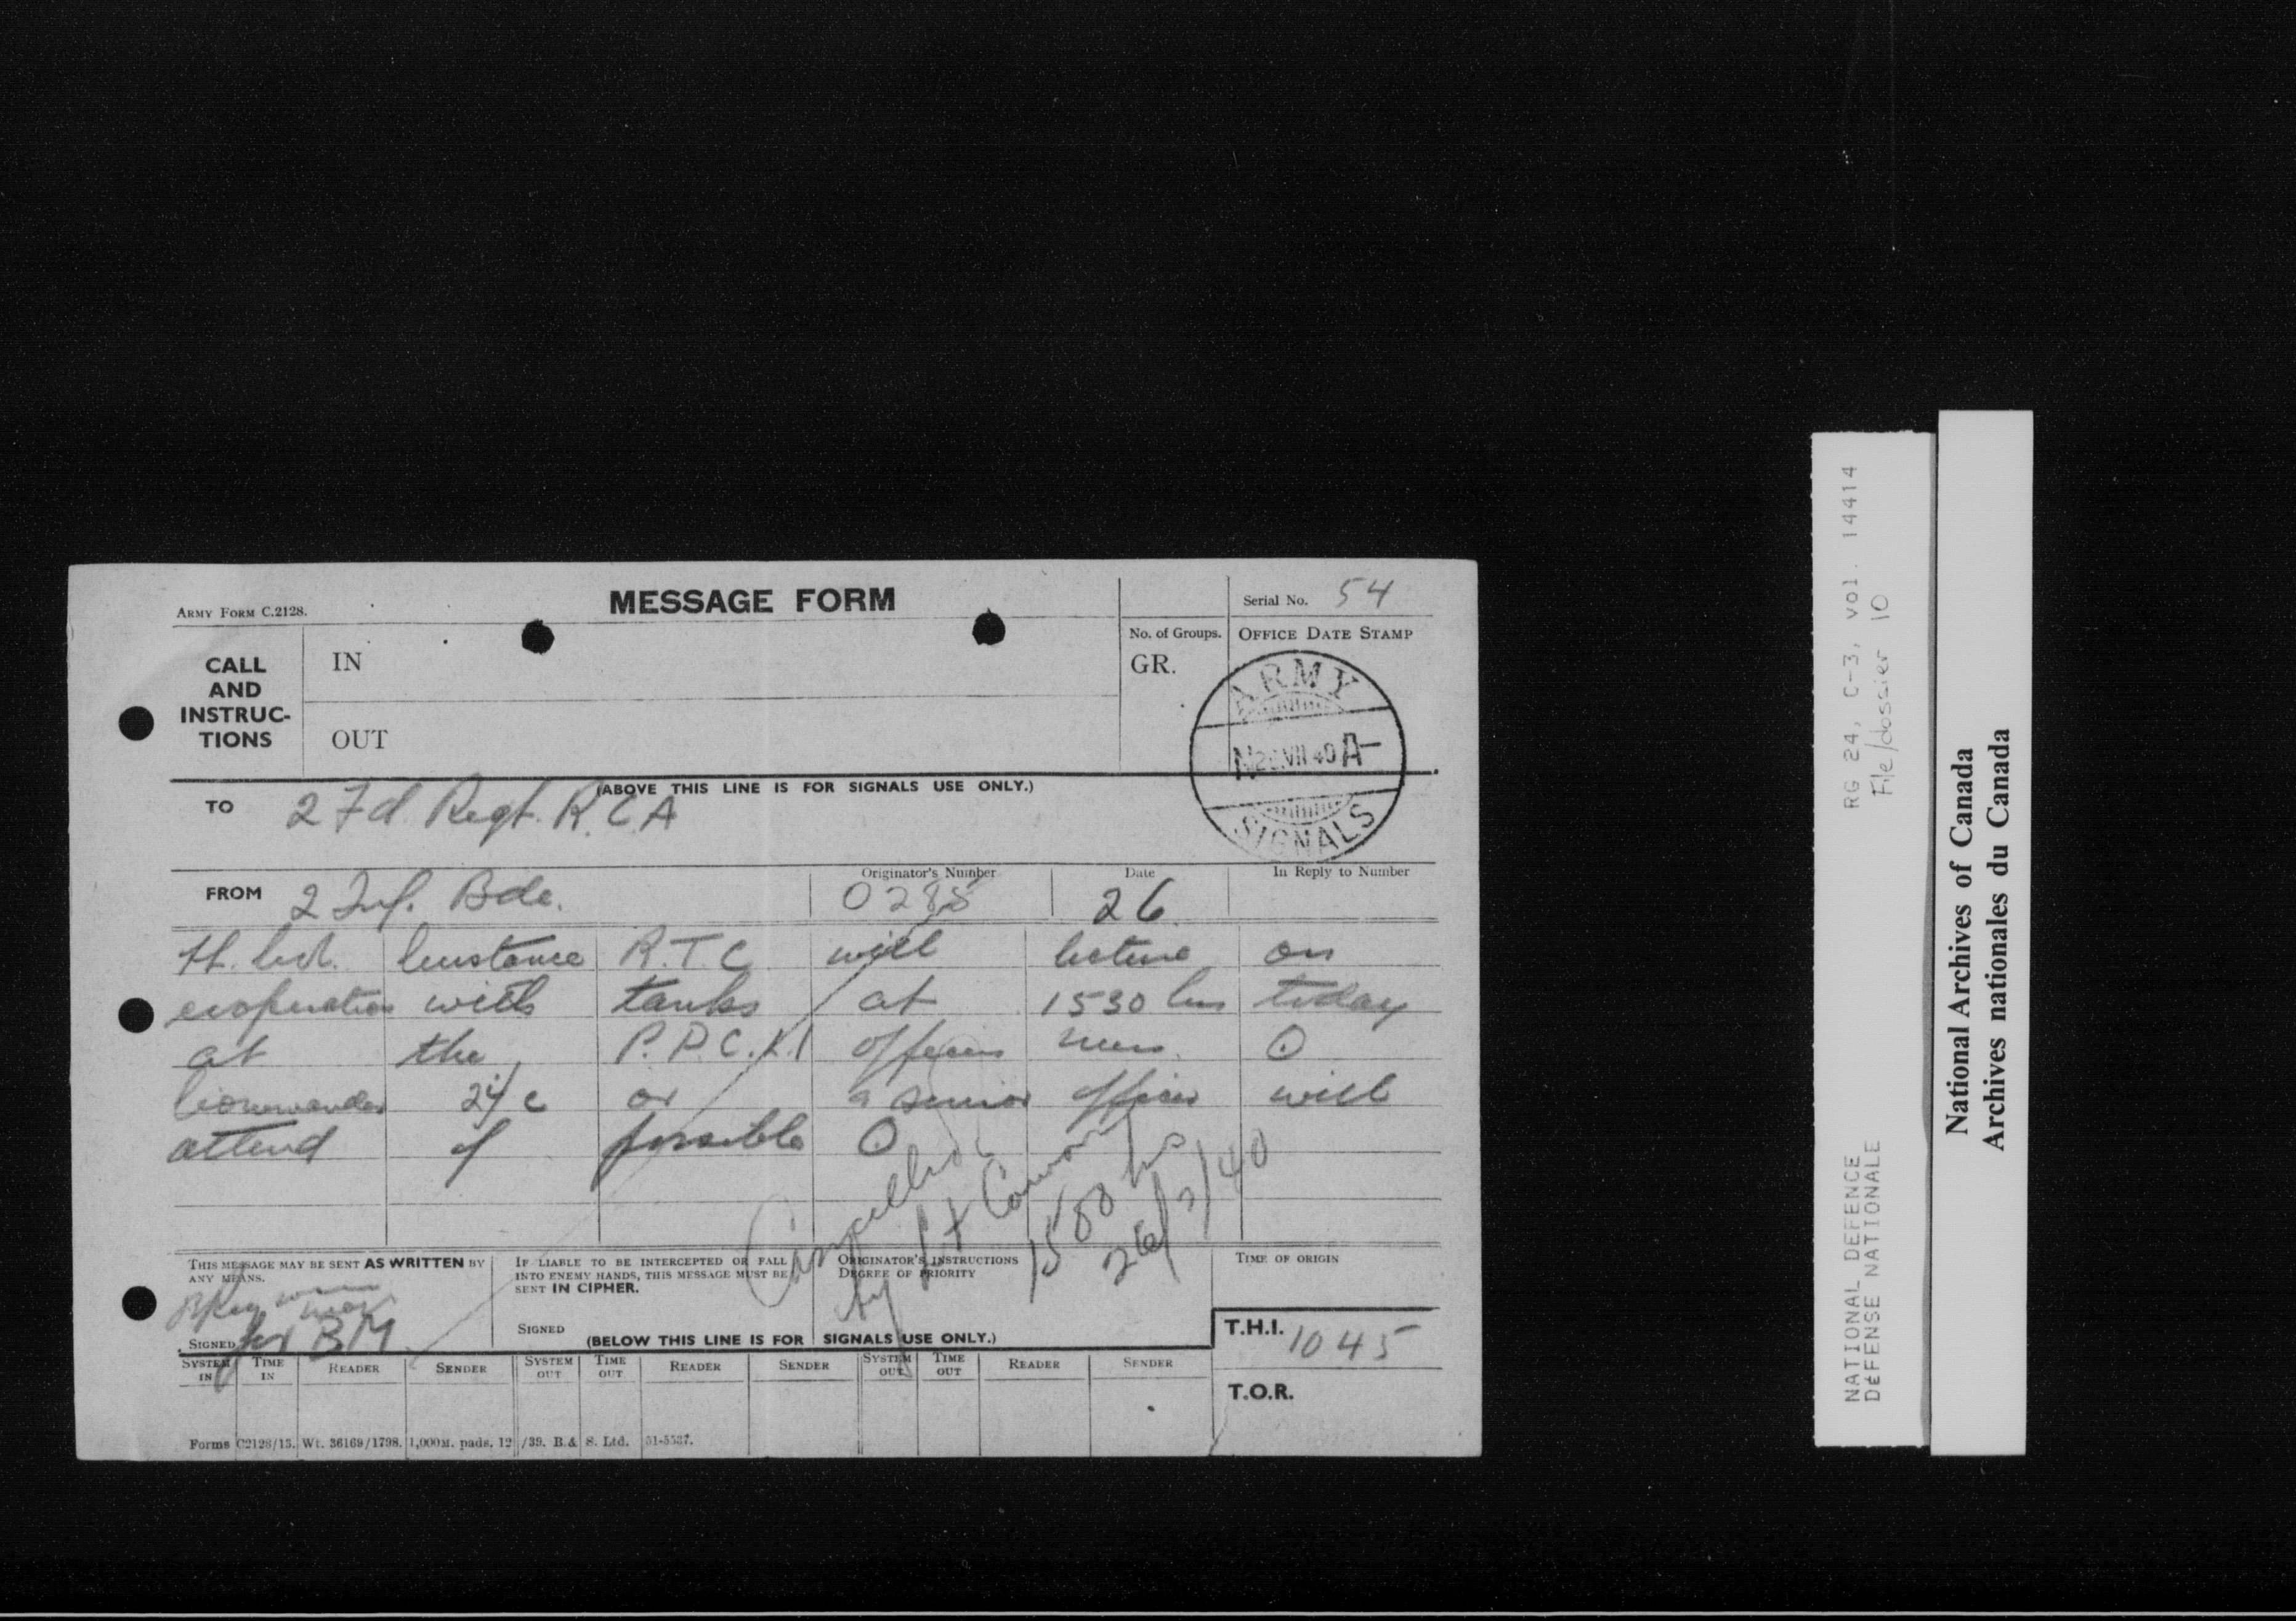 ARMY FORM C.2128.
MESSAGE FORM
Serial No. 54
CALL AND INSTRUC-TIONS
IN
OUT
No. of Groups.
GR.
OFFICE DATE STAMP
ARMY
VII 40 A
SIGNALS
(ABOVE THIS LINE IS FOR SIGNALS USE ONLY.)
TO 2 Fd. Regt. R.C.A
FROM 2 Inf. Bde.
Originator's Number
Date 26
In Reply to Number
R.T.C. will lecture on
cooperation with tanks at 1530 hrs today
at the P.P.C.L.I officers mess O
Commander 2 i/c or a senior officer will
attend if possible O
Cancelled
by Lt
1500 hrs
26/7/40
THIS MESSAGE MAY BE SENT AS WRITTEN BY ANY MEANS.
for BM
SIGNED
IF LIABLE TO BE INTERCEPTED OR FALL INTO ENEMY HANDS, THIS MESSAGE MUST BE SENT IN CIPHER.
SIGNED
ORIGINATOR'S INSTRUCTIONS
DEGREE OF PRIORITY
TIME OF ORIGIN
(BELOW THIS LINE IS FOR SIGNALS USE ONLY.)
T.H.I. 1045
T.O.R.
SYSTEM IN TIME IN READER SENDER SYSTEM OUT TIME OUT READER SENDER SYSTEM OUT TIME OUT READER SENDER
Forms C2128/13. Wt. 36169/1798. 1,000M. pads. 12/39. B.& S. Ltd. 51-5537.
RG 24, C-3, vol. 14414
File/dossier 10
NATIONAL DEFENCE
DÉFENSE NATIONALE
National Archives of Canada
Archives nationales du Canada